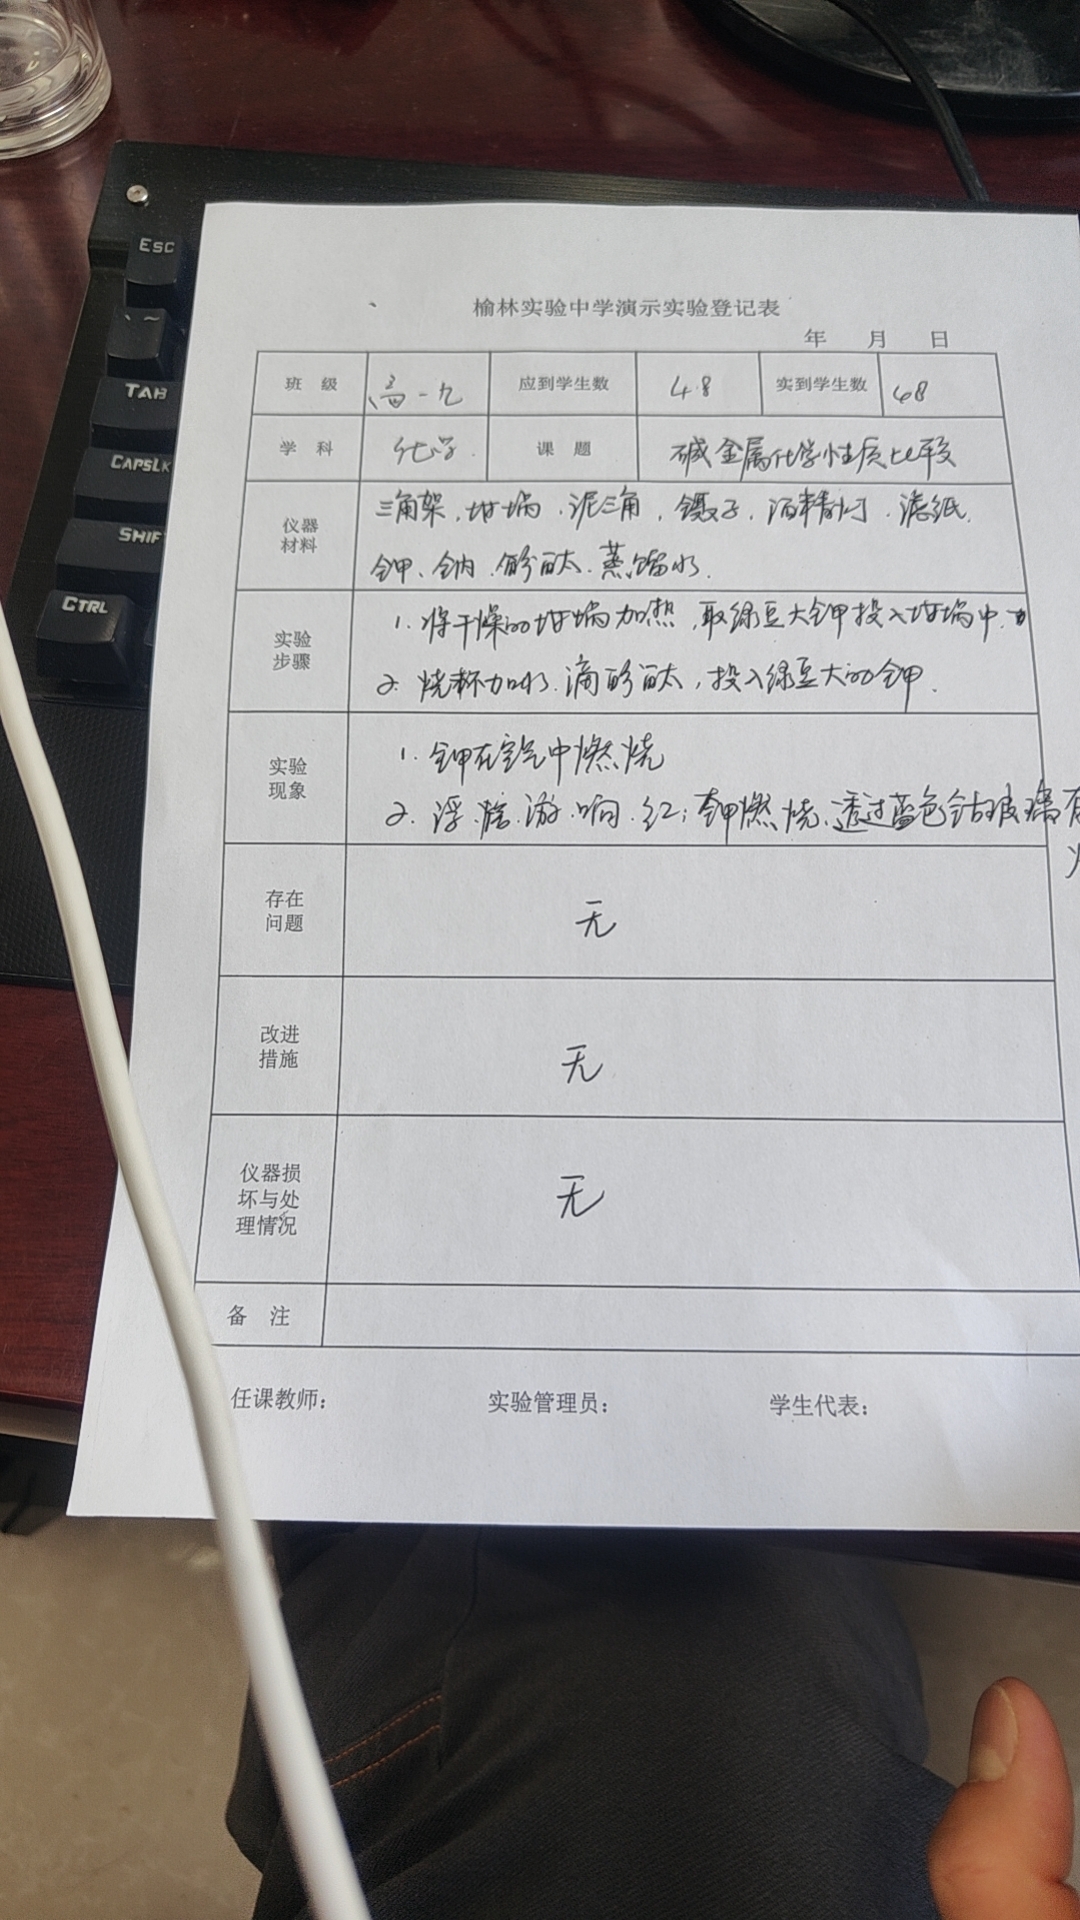 Esc
~
TAB
CAPSLK
SHIF
CTRL
榆林实验中学演示实验登记表
年 月 日
班 级 高一九 应到学生数 48 实到学生数 48
学 科 化学 课 题 碱金属化学性质比较
仪器材料 三角架、坩埚、泥三角、镊子、酒精灯、滤纸、
钾、钠、酚酞、蒸馏水.
实验步骤 1. 将干燥的坩埚加热,取绿豆大钾投入坩埚中.
2. 烧杯加水.滴酚酞,投入绿豆大的钾.
实验现象 1. 钾在空气中燃烧
2. 浮.熔.游.响.红;钾燃烧.透过蓝色钴玻璃
存在问题 无
改进措施 无
仪器损坏与处理情况 无
备 注
任课教师: 实验管理员: 学生代表: